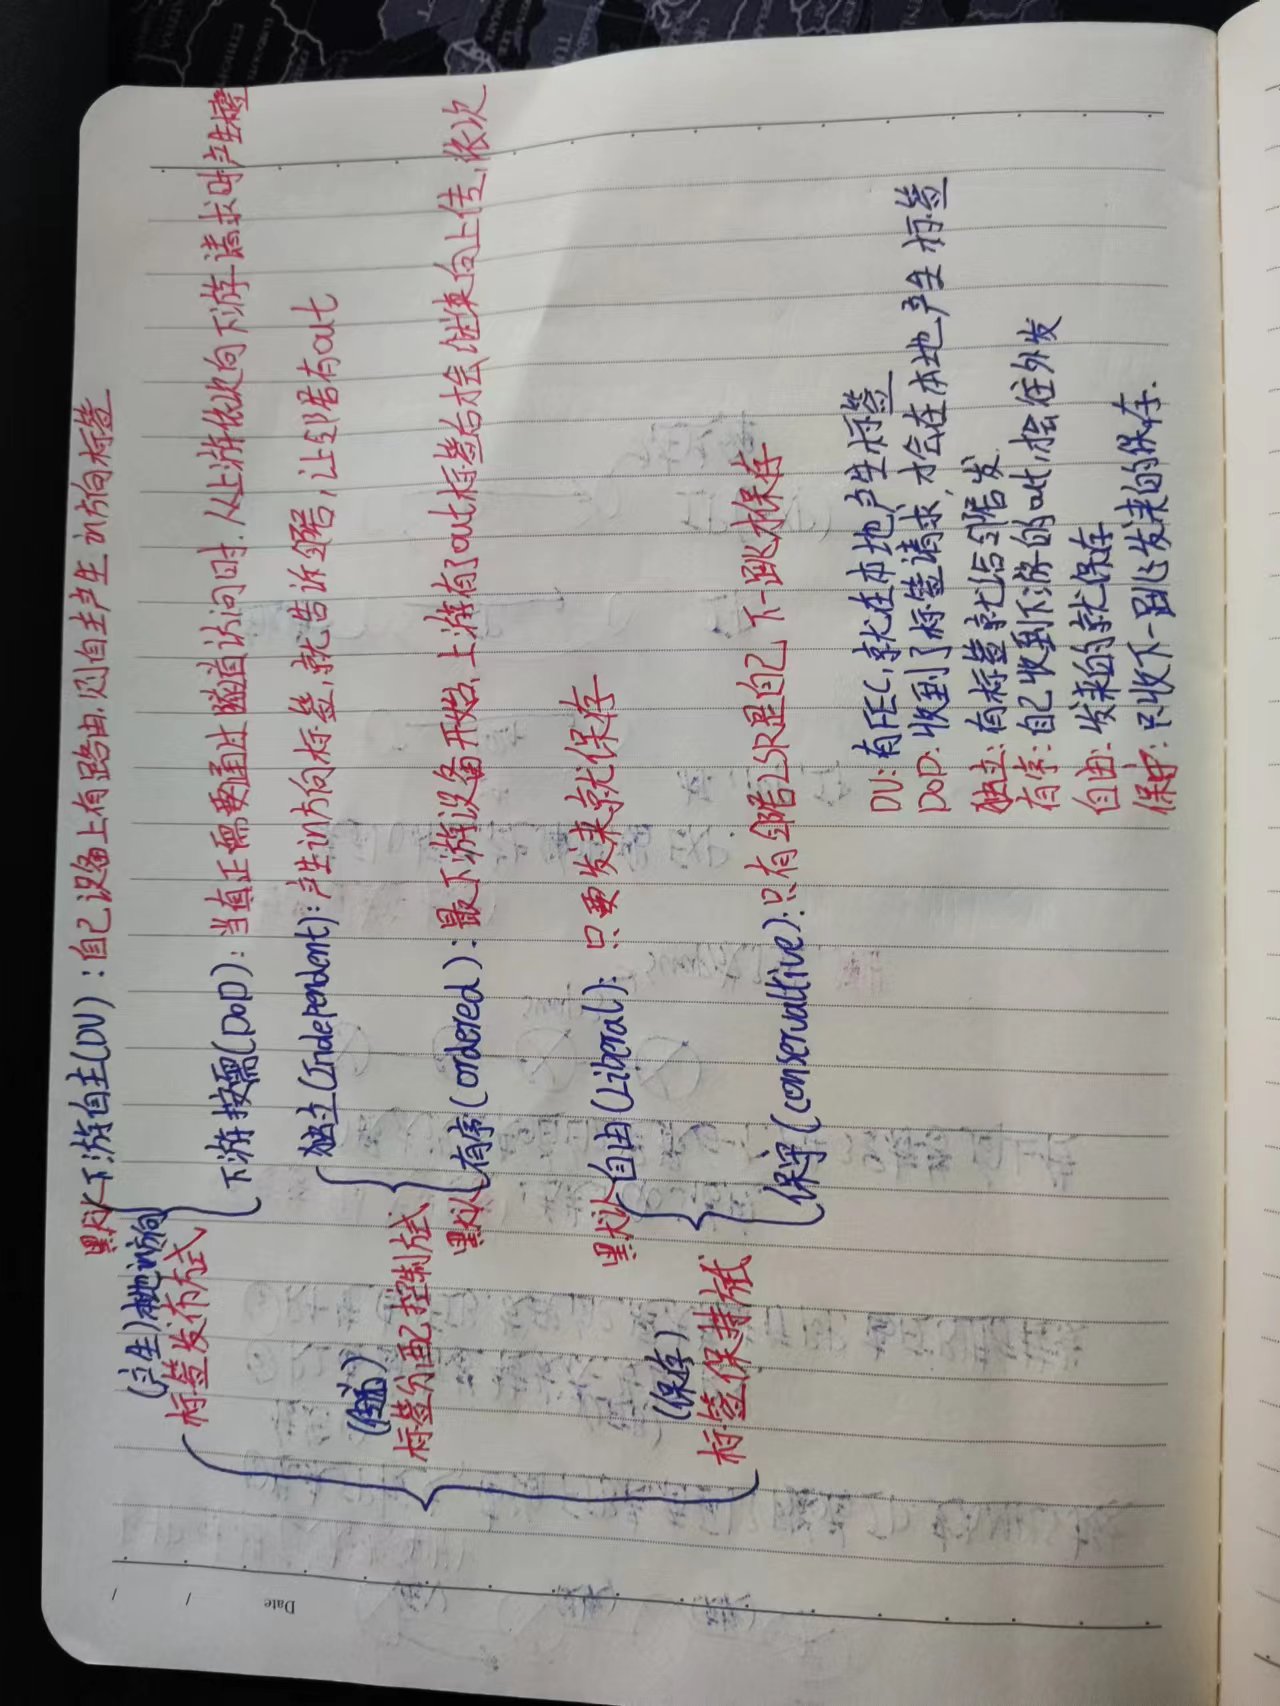 默认下游自主(DU)：自己设备上有路由，则自主产生in方向标签
(产生)本地in方向
标签发布方式
下游按需(DoD)：当真正需要通过隧道访问时，从上游依次向下游请求时产生标签
独立(Independent)：产生in方向标签，就告诉邻居，让邻居有out
标签分配控制方式
默认有序(ordered)：最下游设备开始，上游有了out标签后才会继续向上传，依次
默认自由(Liberal)：只要发来就保存
(保存)
标签保持方式
保守(conservaltive)：只有邻居LSR是自己下一跳才保存
DU：有FEC，就在本地产生标签
DoD：收到了标签请求，才会在本地产生标签
独立：有标签就给邻居发
有序：自己收到下游的out，才会往外发
自由：发来的就保存
保守：只收下一跳发来的保存.
Date / /